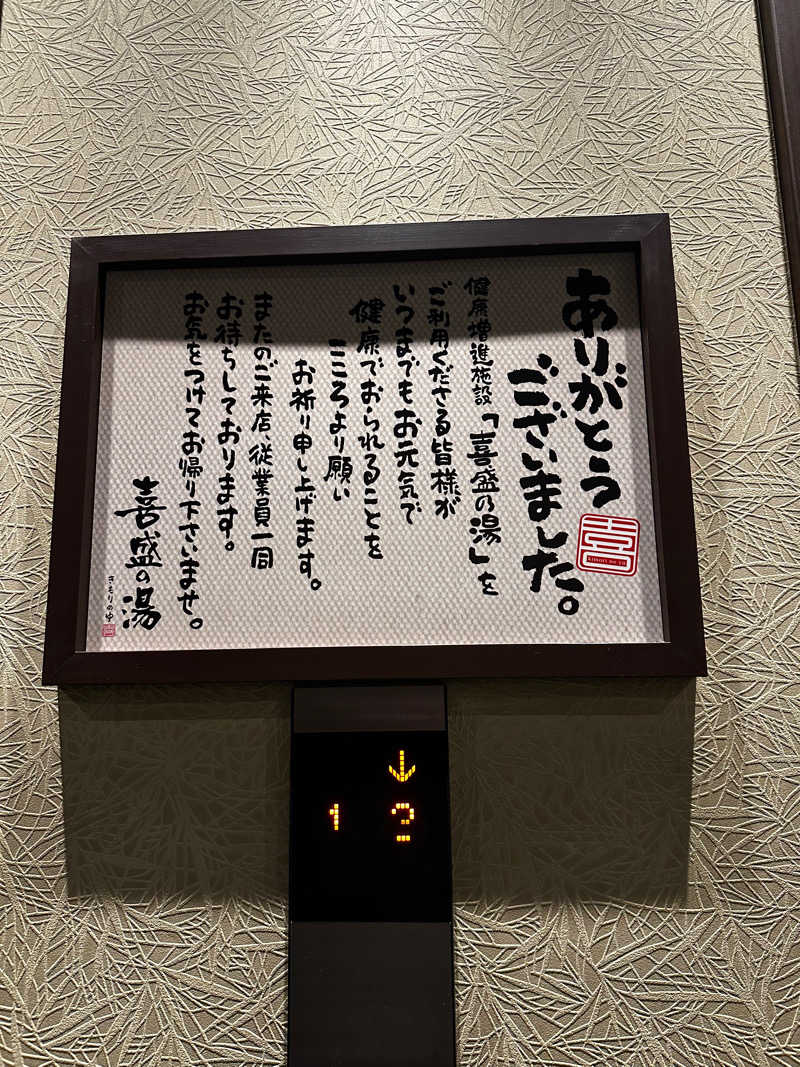 ありがとう
ございました。
喜
KIMORI NO YU
健康増進施設「喜盛の湯」を
ご利用くださる皆様が
いつまでもお元気で
健康でおられることを
こころより願い
お祈り申し上げます。
またのご来店、従業員一同
お待ちしております。
お気をつけてお帰り下さいませ。
喜盛の湯
きもりのゆ
↓
1